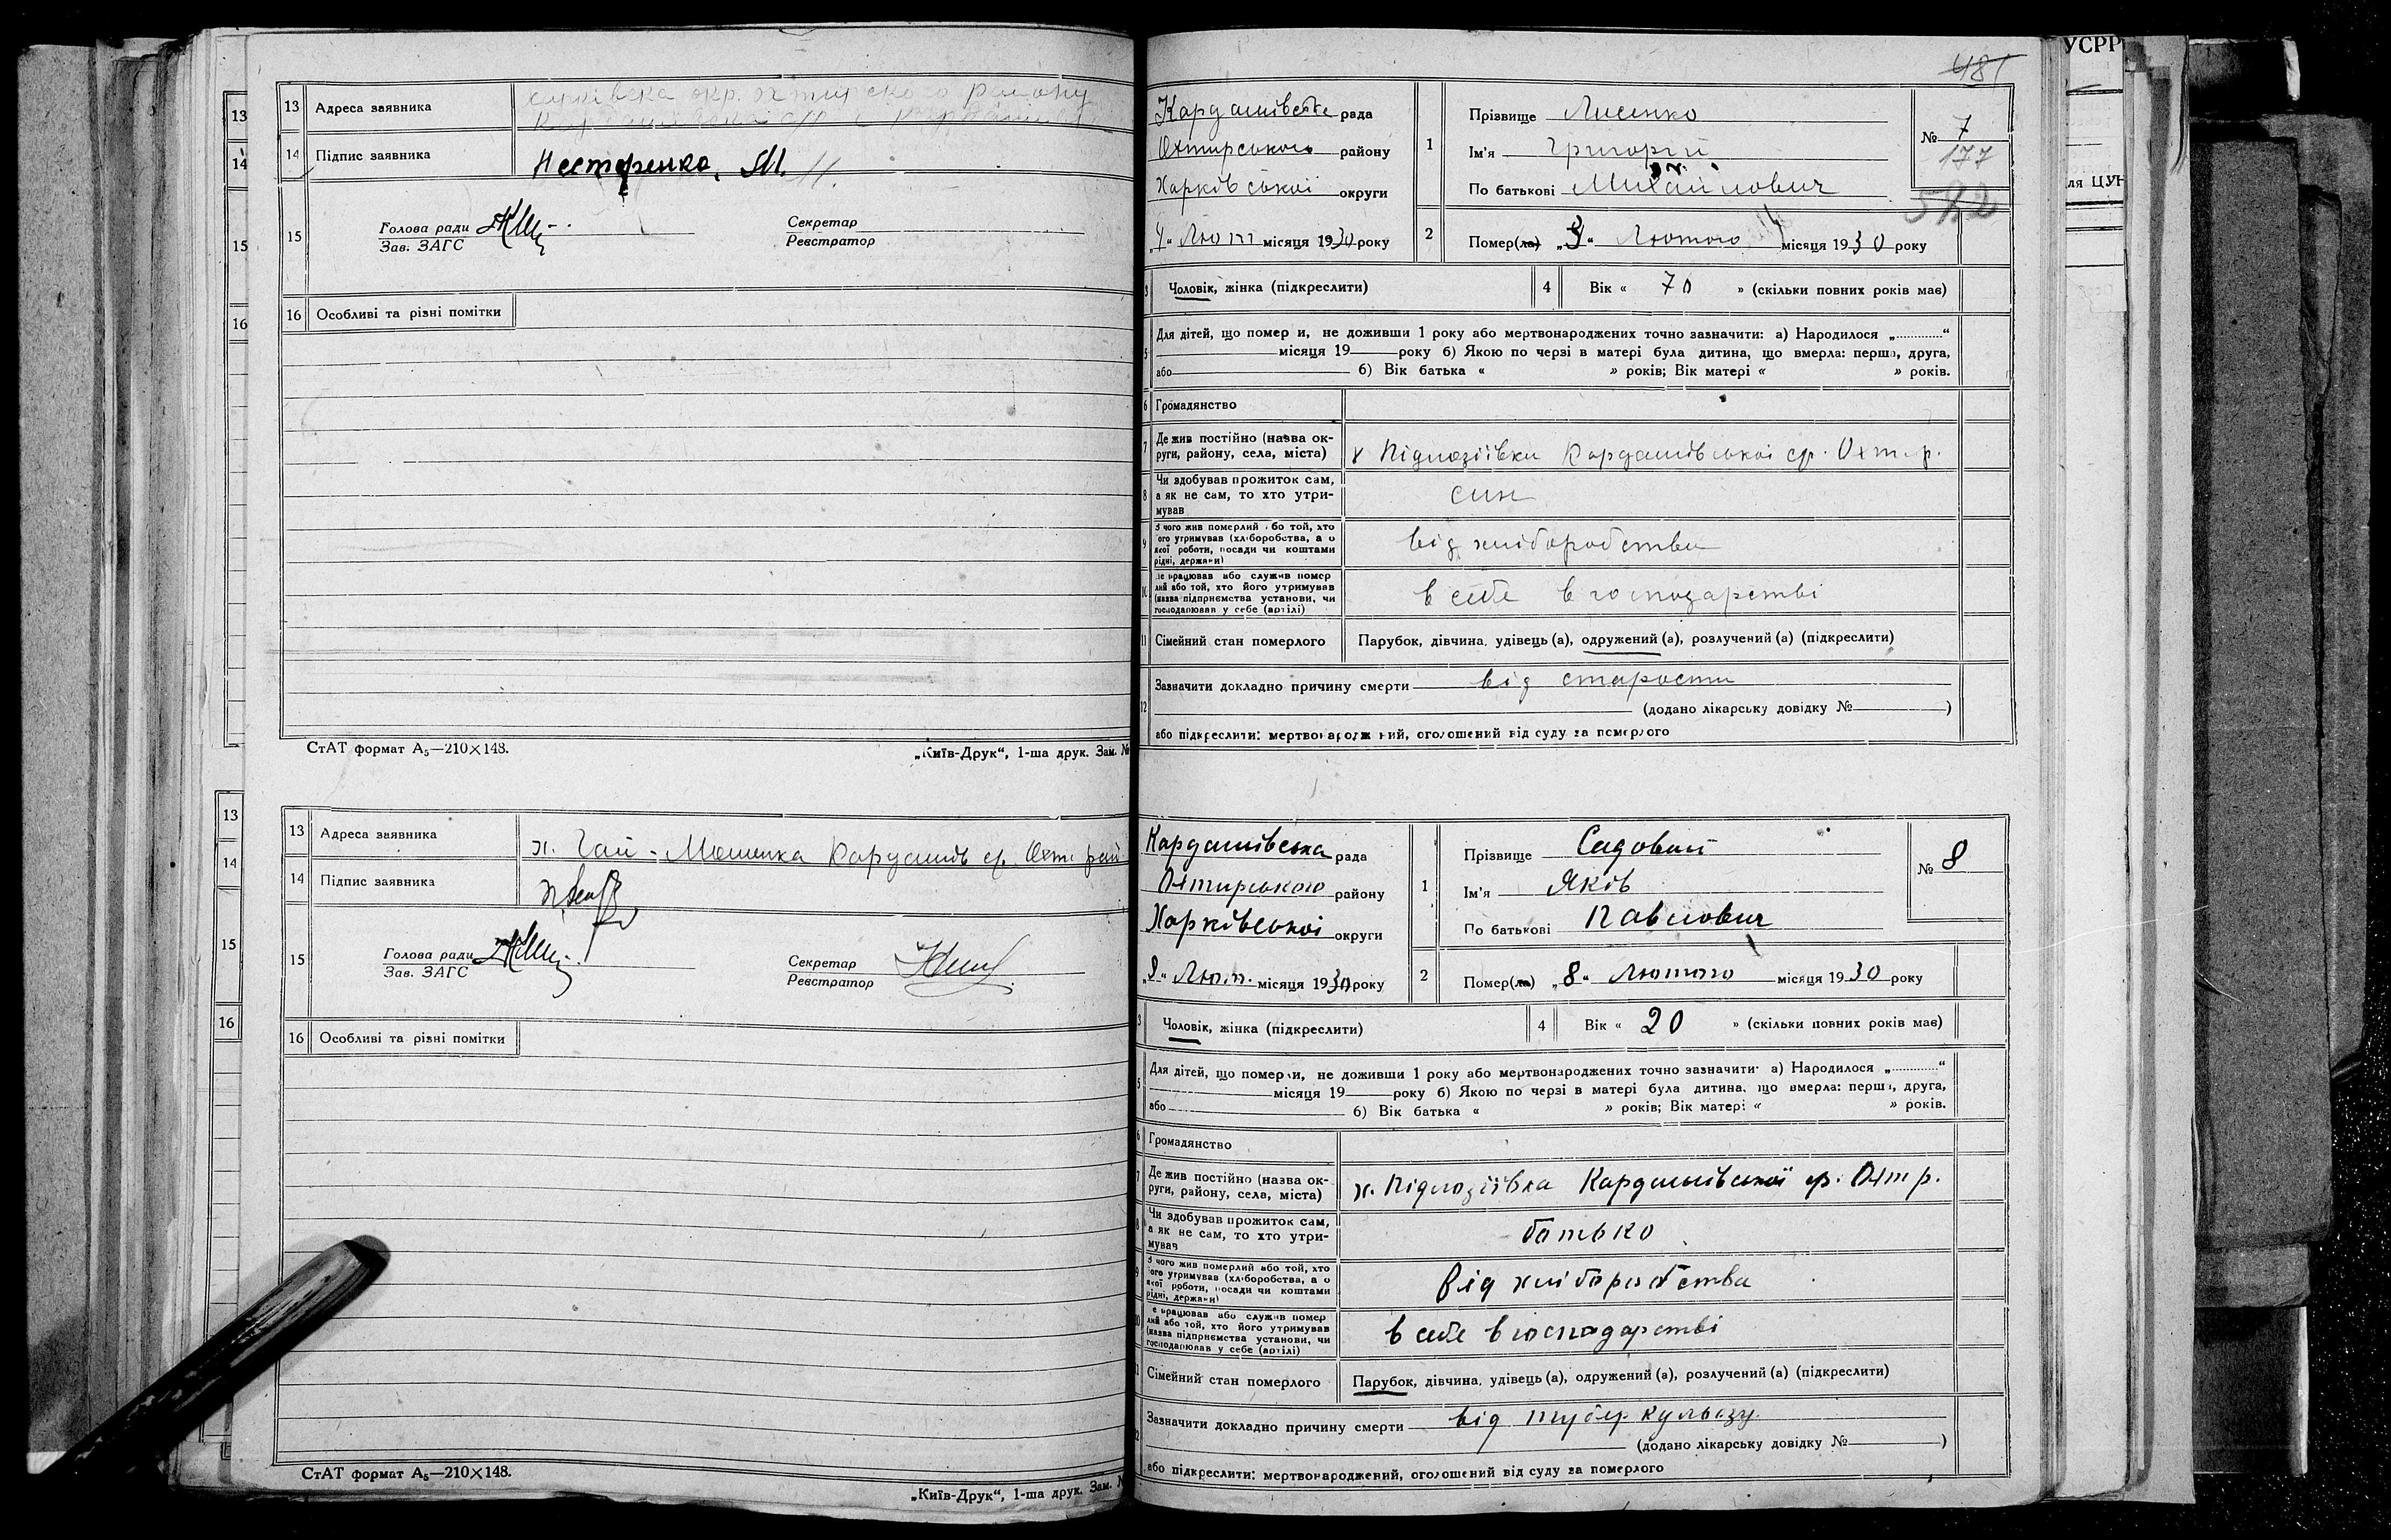 13 Адреса заявника
14 Підпис заявника Нестеренко, М.
15 Голова ради
Зав. ЗАГС
Секретар
Реєстратор
16 Особливі та різні помітки
СтАТ формат А₅—210×148.
„Київ-Друк“, 1-ша друк. Зам. №
13 Адреса заявника х. Гай-Мошенка Кардашів ср. Охт. рай
14 Підпис заявника
15 Голова ради
Зав. ЗАГС
Секретар
Реєстратор
16 Особливі та різні помітки
СтАТ формат А₅—210×148.
„Київ-Друк“, 1-ша друк. Зам. №
13
14
15
16
13
14
15
16
481
Кардашівська рада
Охтирського району
Харківської округи
„4“ Лют місяця 1930 року
1 Прізвище Лисенко
Ім'я Григорій
По батькові Михайлович
№ 7
177
582
2 Помер(ла) Лютого місяця 1930 року
3 Чоловік, жінка (підкреслити)
4 Вік « 70 » (скільки повних років має)
5 Для дітей, що померли, не доживши 1 року або мертвонароджених точно зазначити: а) Народилося „............“
місяця 19 року б) Якою по черзі в матері була дитина, що вмерла: перша, друга,
або б) Вік батька « » років; Вік матері « » років.
6 Громадянство
7 Де жив постійно (назва ок-
руги, району, села, міста) х Підлозіївка Кардашівської ср. Охт. р.
8 Чи здобував прожиток сам,
а як не сам, то хто утри-
мував син
9 З чого жив померлий або той, хто
його утримував (хліборобства, а о
якої роботи, посади чи коштами
рідні, держави) від хліборобства
10 Де працював або служив помер
лий або той, хто його утримував
(назва підприємства установи, чи
господарював у себе (артілі) в себе в господарстві
11 Сімейний стан померлого Парубок, дівчина, удівець (а), одружений (а), розлучений (а) (підкреслити)
12 Зазначити докладно причину смерти від старости
(додано лікарську довідку № )
або підкреслити: мертвонароджений, оголошений від суду за померлого
Кардашівська рада
Охтирського району
Харківської округи
„8“ Лют. місяця 1930 року
1 Прізвище Садовий
Ім'я Яків
По батькові Павлович
№ 8
2 Помер(ла) „8“ Лютого місяця 1930 року
3 Чоловік, жінка (підкреслити)
4 Вік « 20 » (скільки повних років має)
5 Для дітей, що померли, не доживши 1 року або мертвонароджених точно зазначити: а) Народилося „............“
місяця 19 року б) Якою по черзі в матері була дитина, що вмерла: перша, друга,
або б) Вік батька « » років; Вік матері « » років.
6 Громадянство
7 Де жив постійно (назва ок-
руги, району, села, міста) х. Підлозіївка Кардашівської ср. Охт р.
8 Чи здобував прожиток сам,
а як не сам, то хто утри-
мував батько
9 З чого жив померлий або той, хто
його утримував (хліборобства, а о
якої роботи, посади чи коштами
рідні, держави) від хліборобства
10 Де працював або служив помер
лий або той, хто його утримував
(назва підприємства установи, чи
господарював у себе (артілі) в себе в господарстві
11 Сімейний стан померлого Парубок, дівчина, удівець (а), одружений (а), розлучений (а) (підкреслити)
12 Зазначити докладно причину смерти від туберкульозу.
(додано лікарську довідку № )
або підкреслити: мертвонароджений, оголошений від суду за померлого
УСРР
ля ЦУН